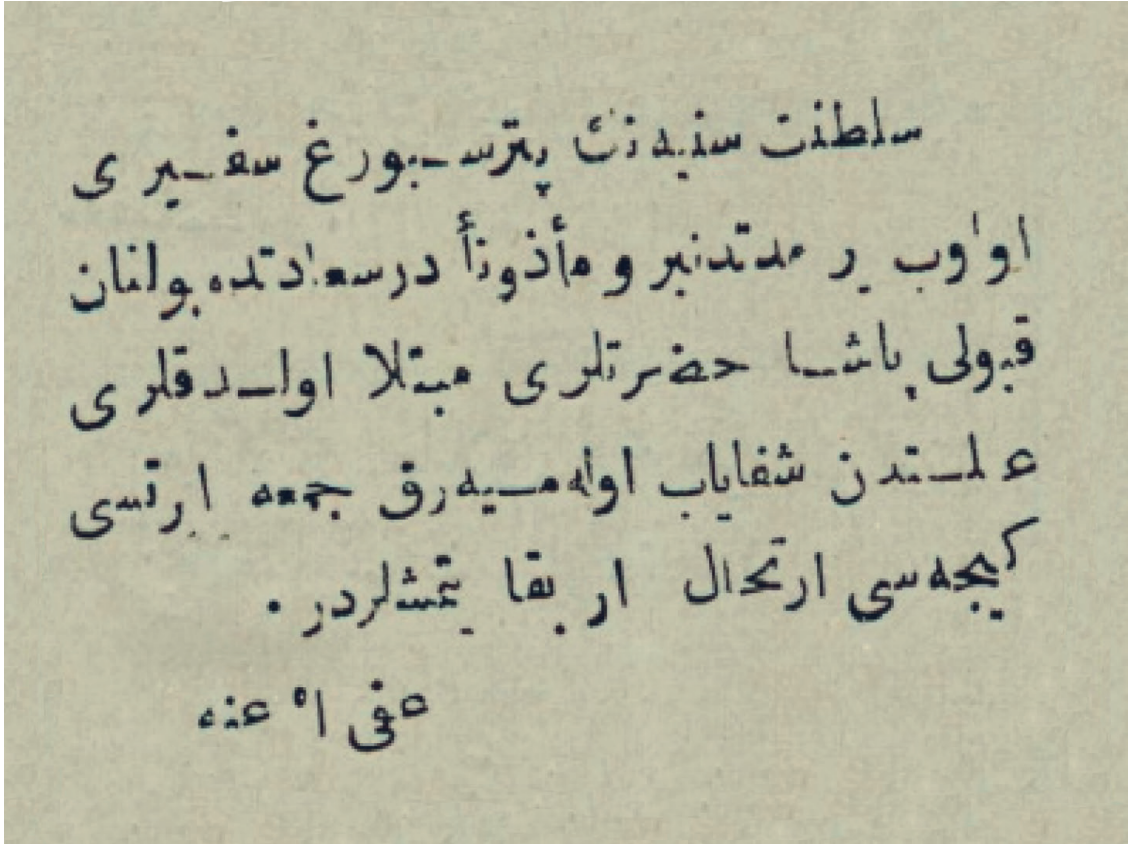 سلطنت سنیه نڭ پترسبورغ سفیری
اولوب بر مدتدنبر و مأذوناً درسعادتده بولنان
قبولی پاشا حضرتلری مبتلا اولدقلری
علتدن شفایاب اوله میه رق جمعه ایرتسی
کیجه سی ارتحال ار بقا یتمشلردر .
عفی ا° عنه